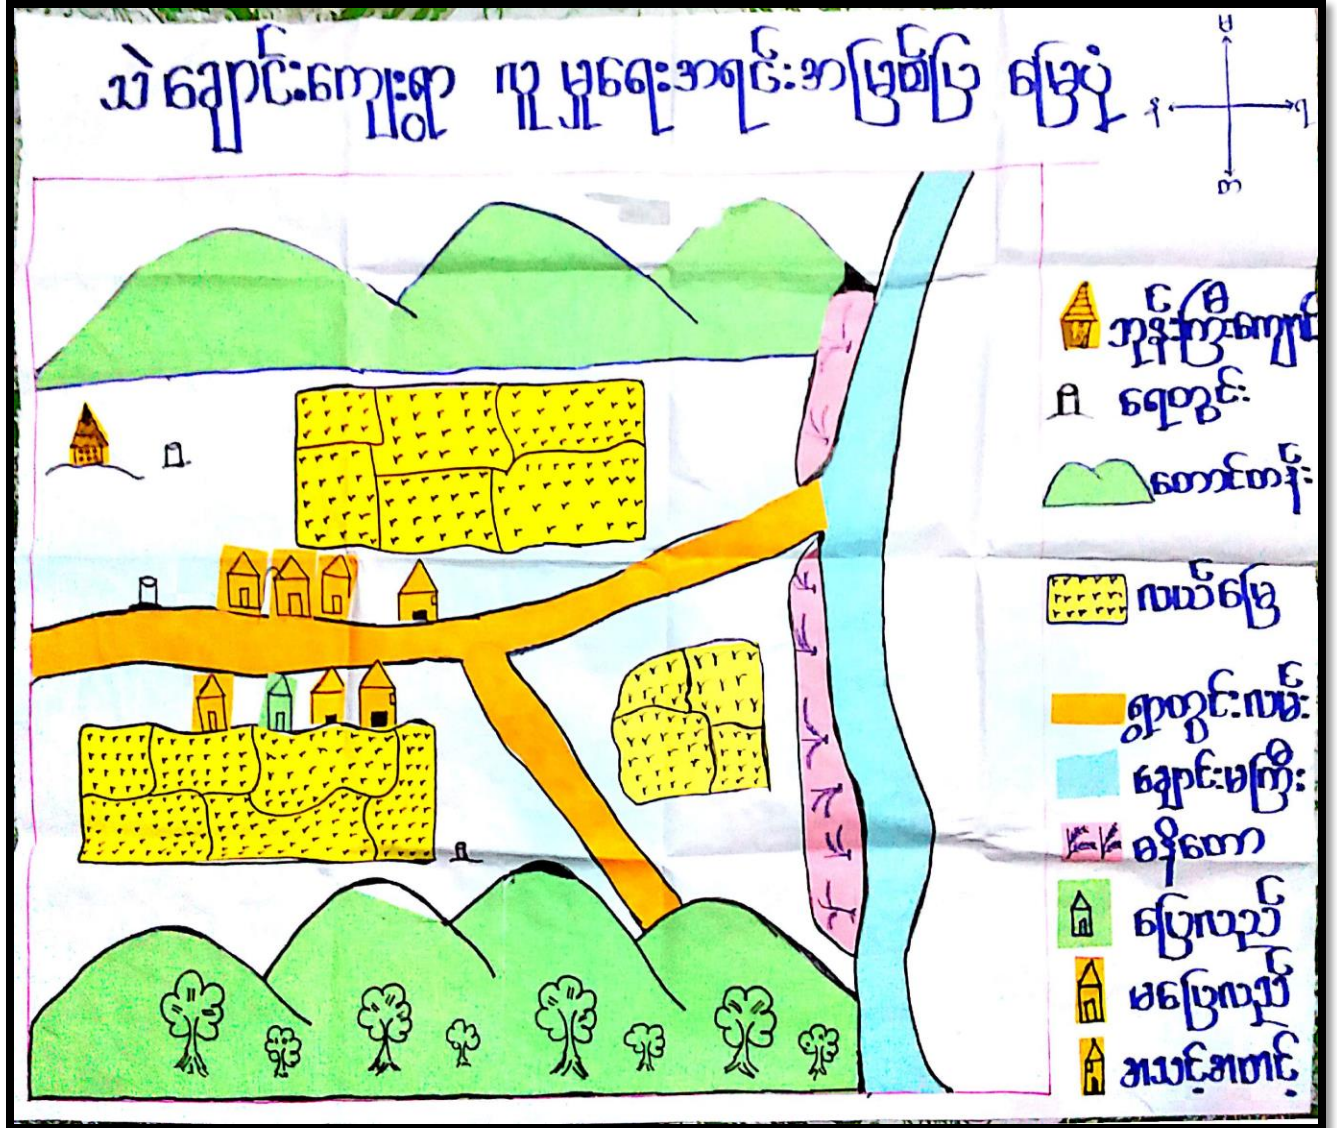 သဲချောင်းကျေးရွာ လူမှုရေးအရင်းအမြစ်ပြ မြေပုံ
မ
န
ရ
တ
ဘုန်းကြီးကျောင်း
ရေတွင်း
တောင်တန်း
လယ်မြေ
ရွာတွင်းလမ်း
ချောင်းမကြီး
ဓနိတော
ပြေလည်
မပြေလည်
အသင့်အတင့်